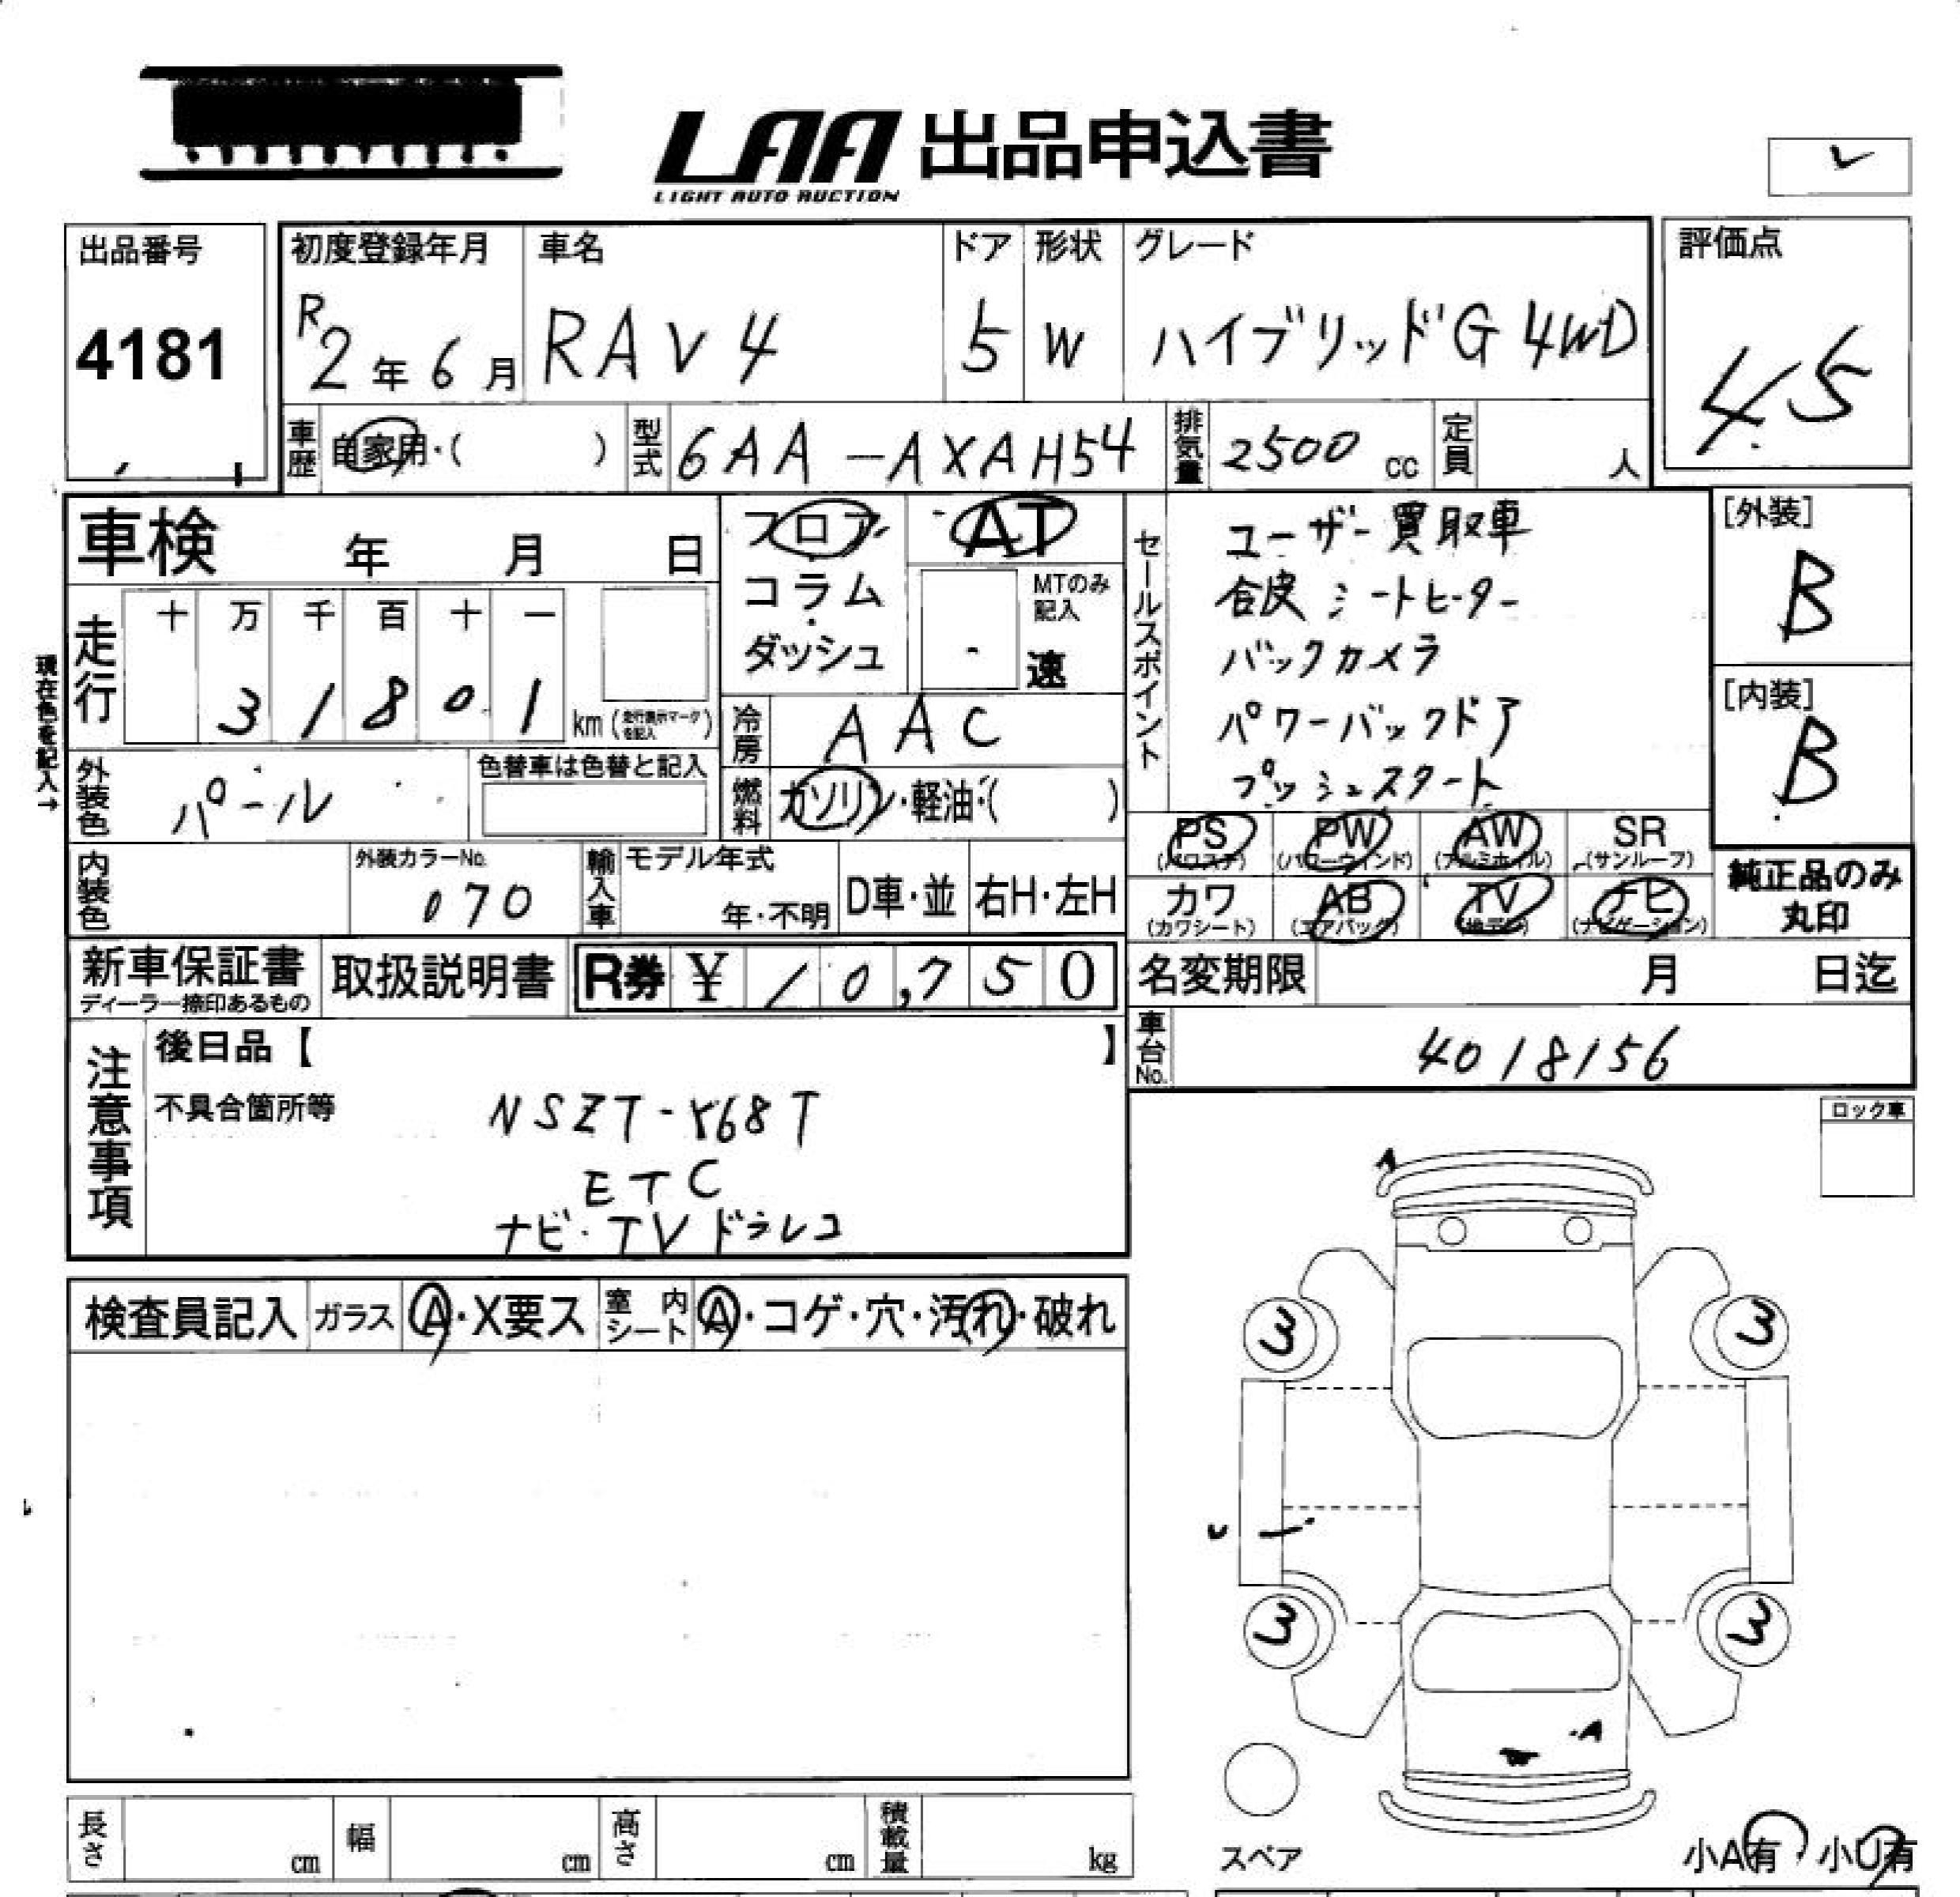 LAA 出品申込書
LIGHT AUTO AUCTION
出品番号
4181
初度登録年月
R2年6月
車名
RAV4
ドア
5
形状
W
グレード
ハイブリッドG 4WD
評価点
4.5
車歴
自家用・( )
型式
6AA-AXAH54
排気量
2500 cc
定員
人
車検 年 月 日
フロア
コラム
ダッシュ
AT
MTのみ
記入
速
走行
十 万 千 百 十 一
3 1 8 0 1
km (走行表示マークを記入)
現在色を記入→
冷房
AAC
燃料
ガソリン・軽油・( )
外装色
パール
色替車は色替と記入
内装色
外装カラーNo.
070
輸入車
モデル年式
年・不明
D車・並
右H・左H
セールスポイント
ユーザー買取車
合皮シートヒーター
バックカメラ
パワーバックドア
プッシュスタート
[外装]
B
[内装]
B
PS
(パワステ)
PW
(パワーウィンド)
AW
(アルミホイル)
SR
(サンルーフ)
カワ
(カワシート)
AB
(エアバック)
TV
(地デジ)
ナビ
(ナビゲーション)
純正品のみ
丸印
新車保証書
ディーラー捺印あるもの
取扱説明書
R券 ¥10,750
名変期限 月 日迄
車台No.
4018156
注意事項
後日品【 】
不具合箇所等
NSZT-Y68T
ETC
ナビ・TV ドラレコ
ロック車
検査員記入
ガラス A・X要ス
室内シート A・コゲ・穴・汚れ・破れ
A
3 3
U
3 3
A
スペア
小A有 小U有
長さ cm
幅 cm
高さ cm
積載量 kg